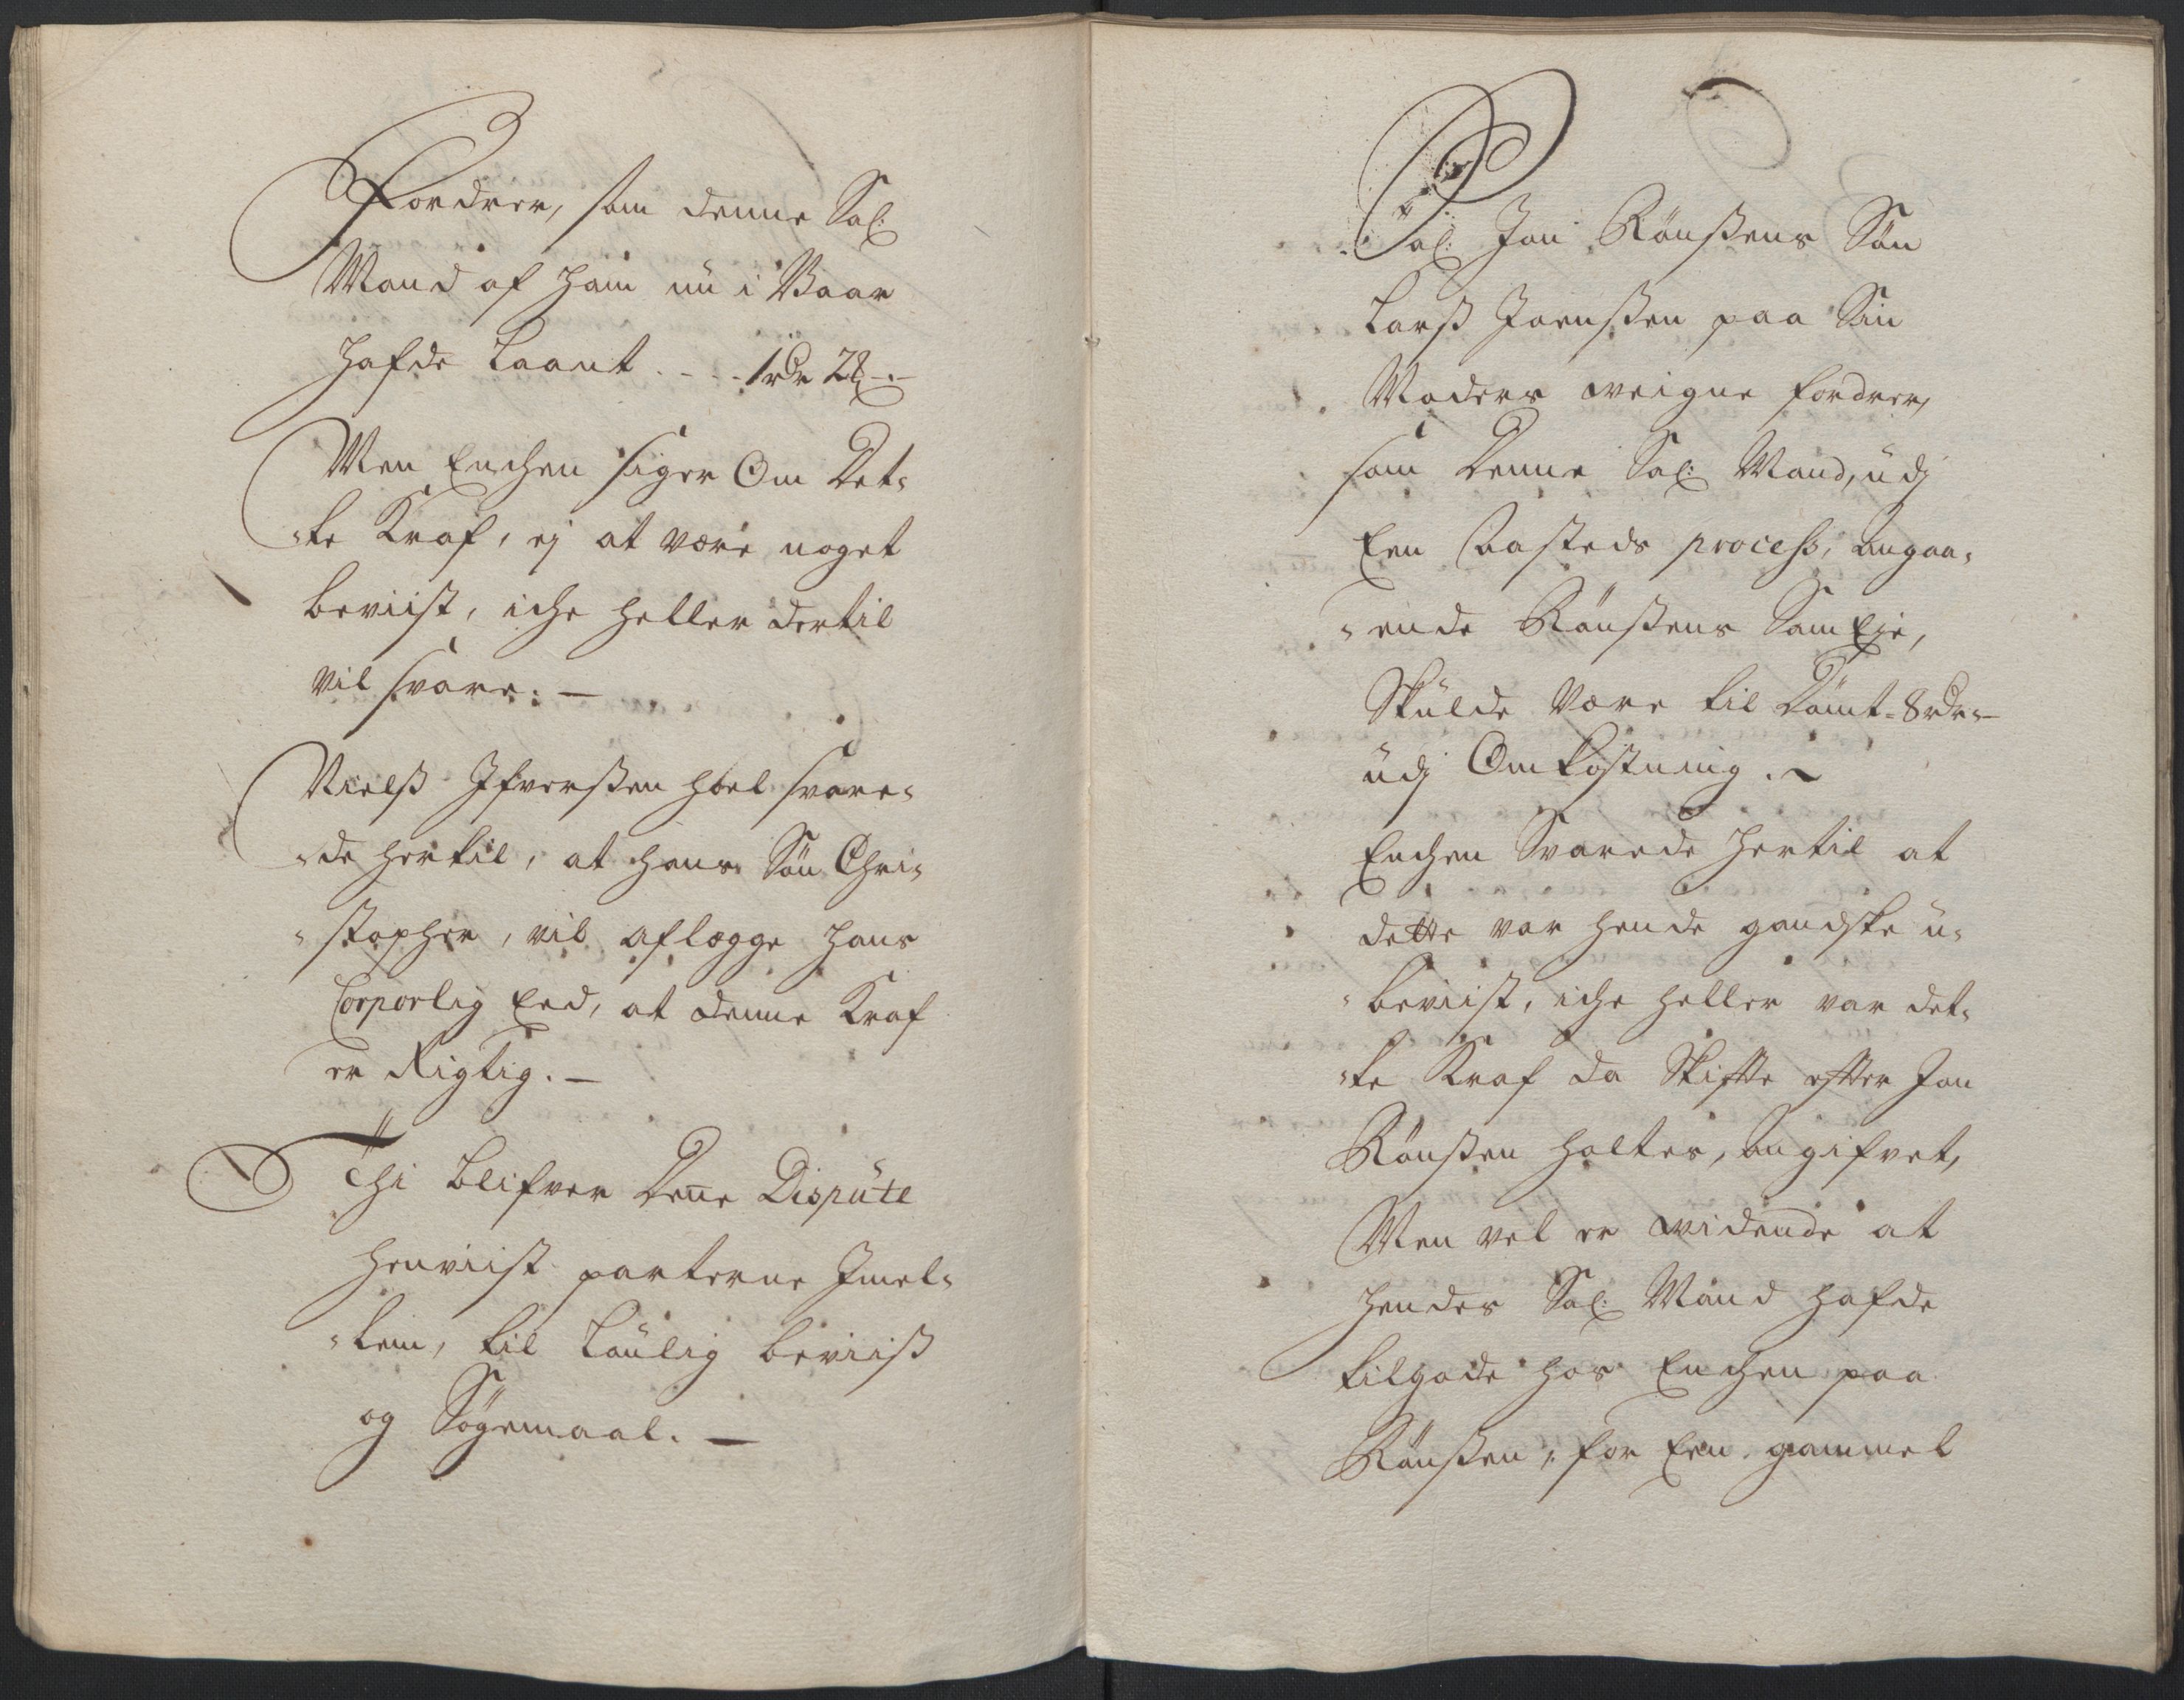 Fordrer, som denne Sal:
Mand af ham nu i Vaar
hafde Laant - - - 1 rdr 2 ₰ -
Men Enchen siger Om Det-
-te Kraf, ej at være noget
beviist, iche heller dertil
vil svare. —
Nielß Ifverßen Hoel svare-
-de hertil, at hans Søn Chri-
-stopher, vil aflægge hans
Corporlig Eed, at denne Kraf
er Rigtig. —
Thi blifver Denne Dispüte
henviist parterne Imel-
-lem, til Laulig beviiß
og Søgemaal. —
Sal: Jon Rønßens Søn
Larß Joenßen paa Sin
Moders veigne fordrer,
som Denne Sal: Mand, üdj
Een Aasteds process, angaa-
-ende Rønßens SamEje,
Skulde Være til Dømt - 8 rdr -
üdj Omkostning. -
Enchen Svarede hertil at
dette var hende gandske ü-
-beviist, iche heller var det-
-te Kraf da Skifte efter Jon
Rønßen holtes, angifvet,
Men vel er vidende at
hendes Sal: Mand hafde
tilgode hos Enchen paa
Rønßen, for Een gammel